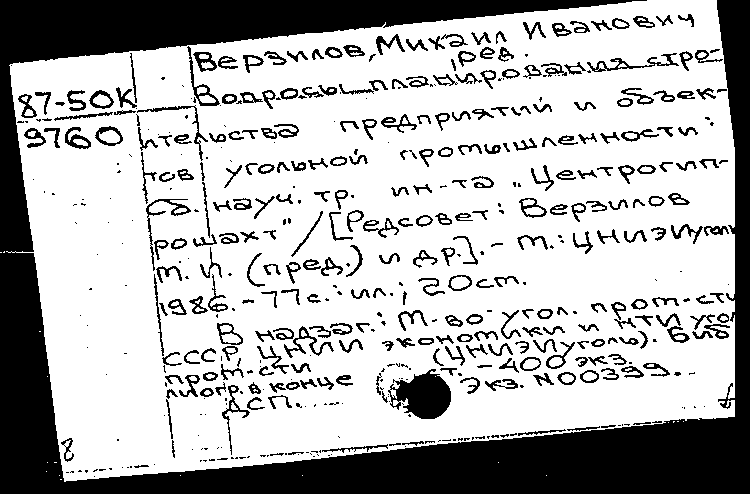 Верзилов, Михаил Иванович
, ред.
87-50К Вопросы планирования стро-
9760 ительства предприятий и объек-
тов угольной промышленности:
Сб. науч. тр. ин-та „Центрогип-
рошахт" / [Редсовет: Верзилов
М. И. (пред.) и др.]. - М.: ЦНИЭИуголь
1986. - 77 с.: ил.; 20 см.
В надзаг.: М-во угол. пром-сти
СССР, ЦНИИ экономики и НТИ угол
пром-сти (ЦНИЭИуголь). Биб
лиогр. в конце ст. - 400 экз.
ДСП. Экз. N00399.
8